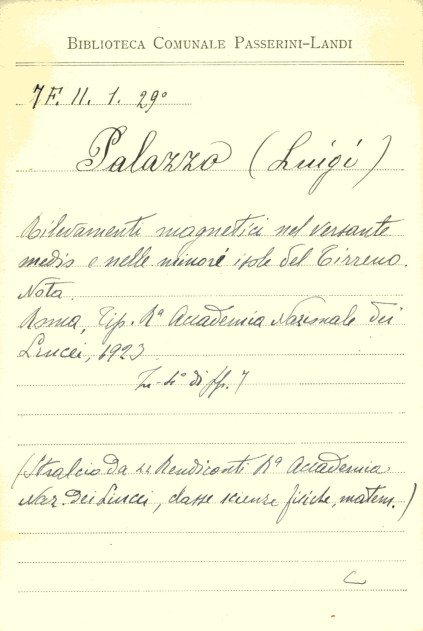 BIBLIOTECA COMUNALE PASSERINI-LANDI
7F. II. 1. 29°
Palazzo (Luigi)
Rilevamenti magnetici nel versante
medio e nelle minori isole del Tirreno.
Nota.
Roma, Tip. Rª Accademia Nazionale dei
Lincei, 1923
In-4° di pp. 7
(Stralcio da Rendiconti Rª Accademia
Naz. dei Lincei, classe scienze fisiche, matem.)
C